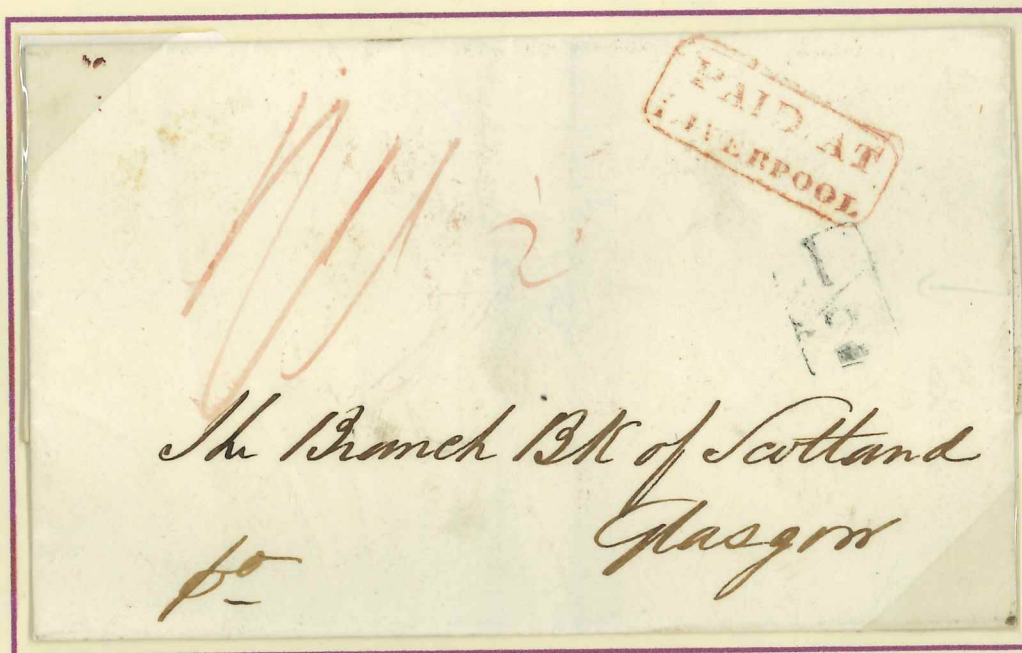 PAID AT
LIVERPOOL
1
2
The Branch Bk of Scotland
Glasgow
pd